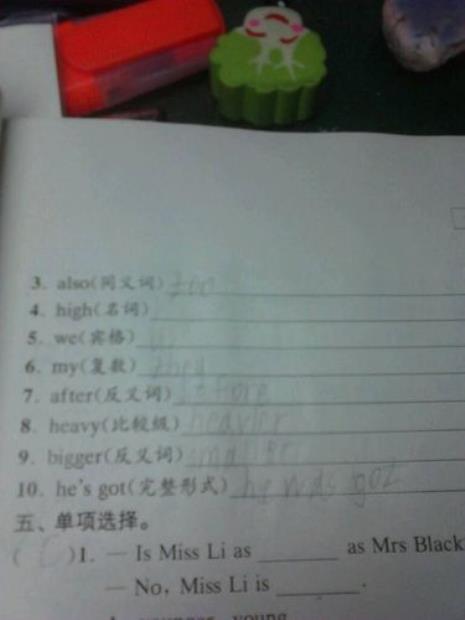 3. also(同义词) too
4. high(名词)
5. we(宾格)
6. my(复数) they
7. after(反义词) before
8. heavy(比较级) heavier
9. bigger(反义词) smaller
10. he's got(完整形式) he was got
五、单项选择。
( C )1. — Is Miss Li as ________ as Mrs Black
— No, Miss Li is ________.